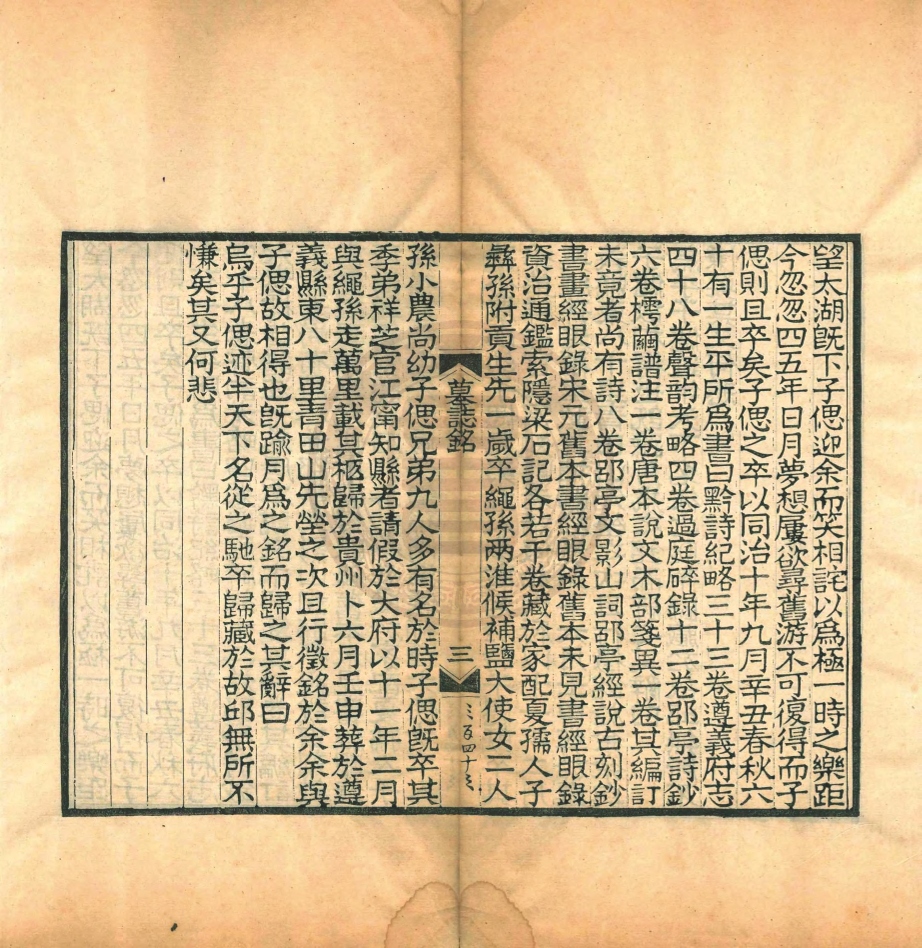 望太湖旣下子偲迎余而笑相詫以爲極一時之樂距
今忽忽四五年日月夢想屢欲尋舊游不可復得而子
偲則且卒矣子偲之卒以同治十年九月辛丑春秋六
十有一生平所爲書曰黔詩紀略三十三卷遵義府志
四十八卷聲韵考略四卷過庭碎錄十二卷郘亭詩鈔
六卷樗繭譜注一卷唐本說文木部箋異一卷其編訂
未竟者尚有詩八卷郘亭文影山詞郘亭經說古刻鈔
書畫經眼錄宋元舊本書經眼錄舊本未見書經眼錄
資治通鑑索隱梁石記各若干卷藏於家配夏孺人子
彝孫附貢生先一歲卒繩孫兩淮候補鹽大使女二人
墓誌銘
三
三百四十三
孫小農尚幼子偲兄弟九人多有名於時子偲旣卒其
季弟祥芝官江甯知縣者請假於大府以十一年二月
與繩孫走萬里載其柩歸於貴州卜六月壬申葬於遵
義縣東八十里青田山先塋之次且行徵銘於余余與
子偲故相得也旣踰月爲之銘而歸之其辭曰
烏乎子偲迹半天下名從之馳卒歸藏於故邱無所不
慊矣其又何悲